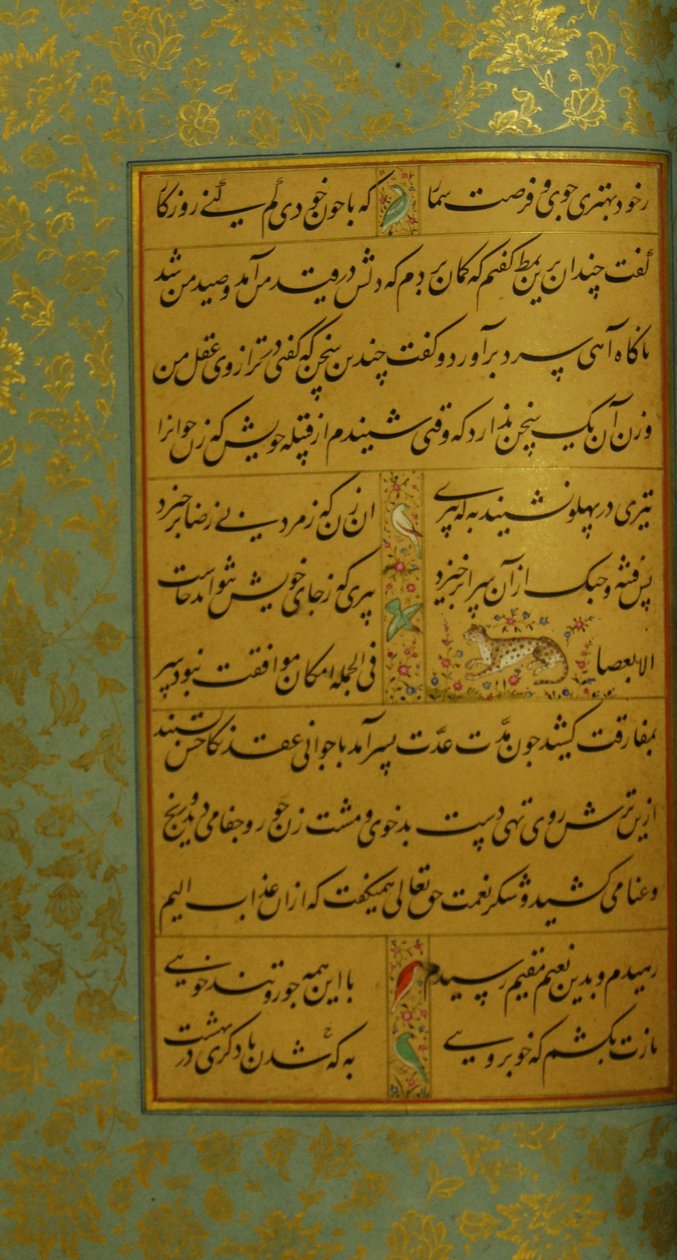 ز خود بهتری جوی و فرصت شمار که با چون خودی گم کنی روزگار
گفت چندان برین نمط گفتم که گمان بردم که دلش در قید من آمد و صید من شد
ناگاه آهی سرد برآورد و گفت چندین سخن که گفتی در ترازوی عقل من
وزن آن یک سخن ندارد که وقتی شنیدم از قبیله خویش که زن جوانرا
تیری در پهلو نشیند به که پیری ان زن که ز مرد بی رضا برخیزد
بس فتنه و جنگ از آن سرا برخیزد پیری که ز جای خویش نتواند خاست
الا بعصا فی الجمله امکان موافقت نبود
بمفارقت کشید چون مدّت عدّت بسر آمد با جوانی عقد نکاحش بستند
ازین ترش روی تهی دست بدخوی و مشت زن جور و جفا می دید و رنج
و عنا می کشید و شکر نعمت حق تعالی همیگفت که ازان عذاب الیم
رهیدم و بدین نعیم مقیم رسیدم با این همه جور و تند خویی
نازت بکشم که خوبرویی به که شدن با دگری در بهشت